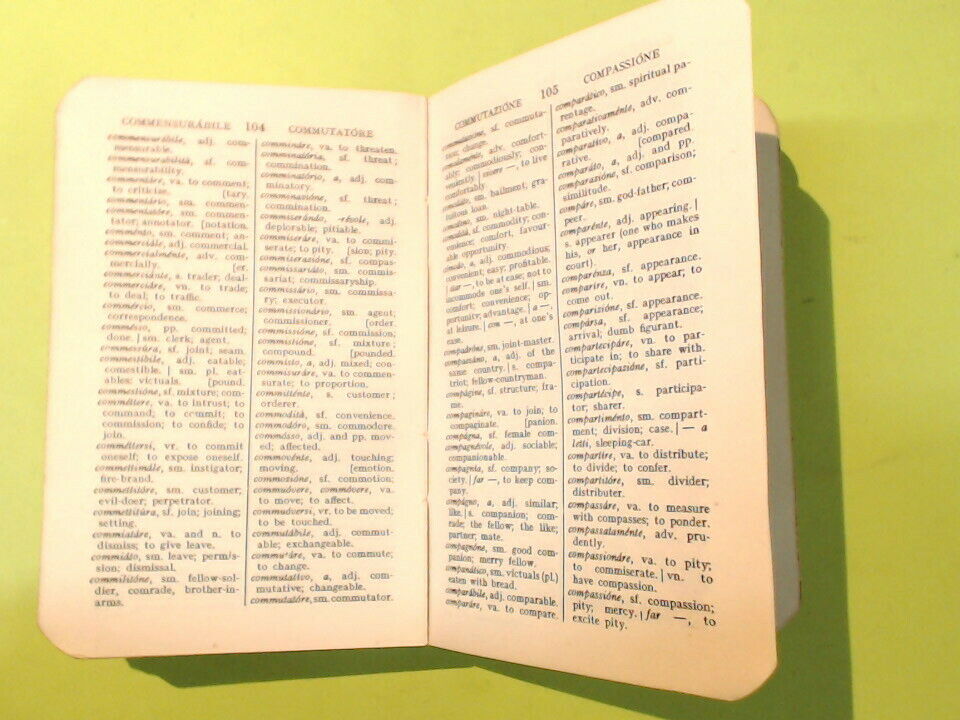 COMMENSURÁBILE 104 COMMUTATÓRE
commensurábile, adj. com-
mensurable.
commensurabilità, sf. com-
mensurability.
commentáre, va. to comment;
to criticise. [tary.
commentário, sm. commen-
commentatóre, sm. commen-
tator; annotator. [notation.
comménto, sm. comment; an-
commerciále, adj. commercial.
commercialménte, adv. com-
mercially. [er.
commerciánte, s. trader; deal-
commerciáre, vn. to trade;
to deal; to traffic.
commércio, sm. commerce;
correspondence.
commésso, pp. committed;
done. | sm. clerk; agent.
commessúra, sf. joint; seam.
commestíbile, adj. eatable;
comestible. | sm. pl. eat-
ables: victuals. [pound.
commestióne, sf. mixture; com-
comméttere, va. to intrust; to
command; to commit; to
commission; to confide; to
join.
comméttersi, vr. to commit
oneself; to expose oneself.
commettimále, sm. instigator;
fire-brand.
commettitóre, sm. customer;
evil-doer; perpetrator.
commettitúra, sf. join; joining;
setting.
commiatáre, va. and n. to
dismiss; to give leave.
commiáto, sm. leave; permis-
sion; dismissal.
commilitóne, sm. fellow-sol-
dier, comrade, brother-in-
arms.
commináre, va. to threaten.
comminatória, sf. threat;
commination.
comminatório, a, adj. com-
minatory.
comminazióne, sf. threat;
commination.
commiserándo, -révole, adj.
deplorable; pitiable.
commiseráre, va. to commi-
serate; to pity. [sion; pity.
commiserazióne, sf. compas-
commissariáto, sm. commis-
sariat; commissaryship.
commissário, sm. commissa-
ry; executor.
commissionário, sm. agent;
commissioner. [order.
commissióne, sf. commission;
commistióne, sf. mixture;
compound. [pounded.
commísto, a, adj. mixed; con-
commisuráre, va. to commen-
surate; to proportion.
committénte, s. customer;
orderer.
commodità, sf. convenience.
commodóro, sm. commodore.
commósso, adj. and pp. mov-
ed; affected.
commovénte, adj. touching;
moving. [emotion.
commozióne, sf. commotion;
commuóvere, commóvere, va.
to move; to affect.
commuóversi, vr. to be moved;
to be touched.
commutábile, adj. commut-
able; exchangeable.
commutáre, va. to commute;
to change.
commutatívo, a, adj. com-
mutative; changeable.
commutatóre, sm. commutator.
COMMUTAZIÓNE 105 COMPASSIÓNE
commutazióne, sf. commuta-
tion; change.
comodaménte, adv. comfort-
ably; commodiously; con-
veniently | vivere —, to live
comfortably
comodáto, sm. bailment, gra-
tuitous loan.
comodíno, sm. night-table.
comodità, sf. commodity; con-
venience; comfort, favour-
able opportunity.
cómodo, a, adj. commodious;
convenient; easy; profitable.
| star —, to be at ease; not to
incommode one's self. | sm.
comfort; convenience; op-
portunity; advantage. | a —,
at leisure. | con —, at one's
ease.
compadróne, sm. joint-master.
compaesáno, a, adj. of the
same country. | s. compa-
triot; fellow-countryman.
compágine, sf. structure; fra-
me.
compagináre, va. to join; to
compaginate. [panion.
compágna, sf. female com-
compagnévole, adj. sociable;
companionable.
compagnía, sf. company; so-
ciety. | far —, to keep com-
pany.
compágno, a, adj. similar;
like. | s. companion; com-
rade; the fellow; the like;
partner; mate.
compagnóne, sm. good com-
panion; merry fellow.
companático, sm. victuals (pl.)
eaten with bread.
comparábile, adj. comparable.
comparáre, va. to compare.
comparático, sm. spiritual pa-
rentage.
comparativaménte, adv. com-
paratively.
comparatívo, a, adj. compa-
rative. [compared.
comparáto, a, adj. and pp.
comparazióne, sf. comparison;
similitude.
compáre, sm. god-father; com-
peer.
comparénte, adj. appearing. |
s. appearer (one who makes
his, or her, appearance in
court).
comparénza, sf. appearance.
comparíre, vn. to appear; to
come out.
comparizióne, sf. appearance.
compársa, sf. appearance;
arrival; dumb figurant.
compartecipáre, vn. to par-
ticipate in; to share with.
compartecipazióne, sf. parti-
cipation.
compartécipe, s. participa-
tor; sharer.
compartiménto, sm. compart-
ment; division; case. | — a
letti, sleeping-car.
compartíre, va. to distribute;
to divide; to confer.
compartitóre, sm. divider;
distributer.
compassáre, va. to measure
with compasses; to ponder.
compassataménte, adv. pru-
dently.
compassionáre, va. to pity;
to commiserate. | vn. to
have compassion.
compassióne, sf. compassion;
pity; mercy. | far —, to
excite pity.